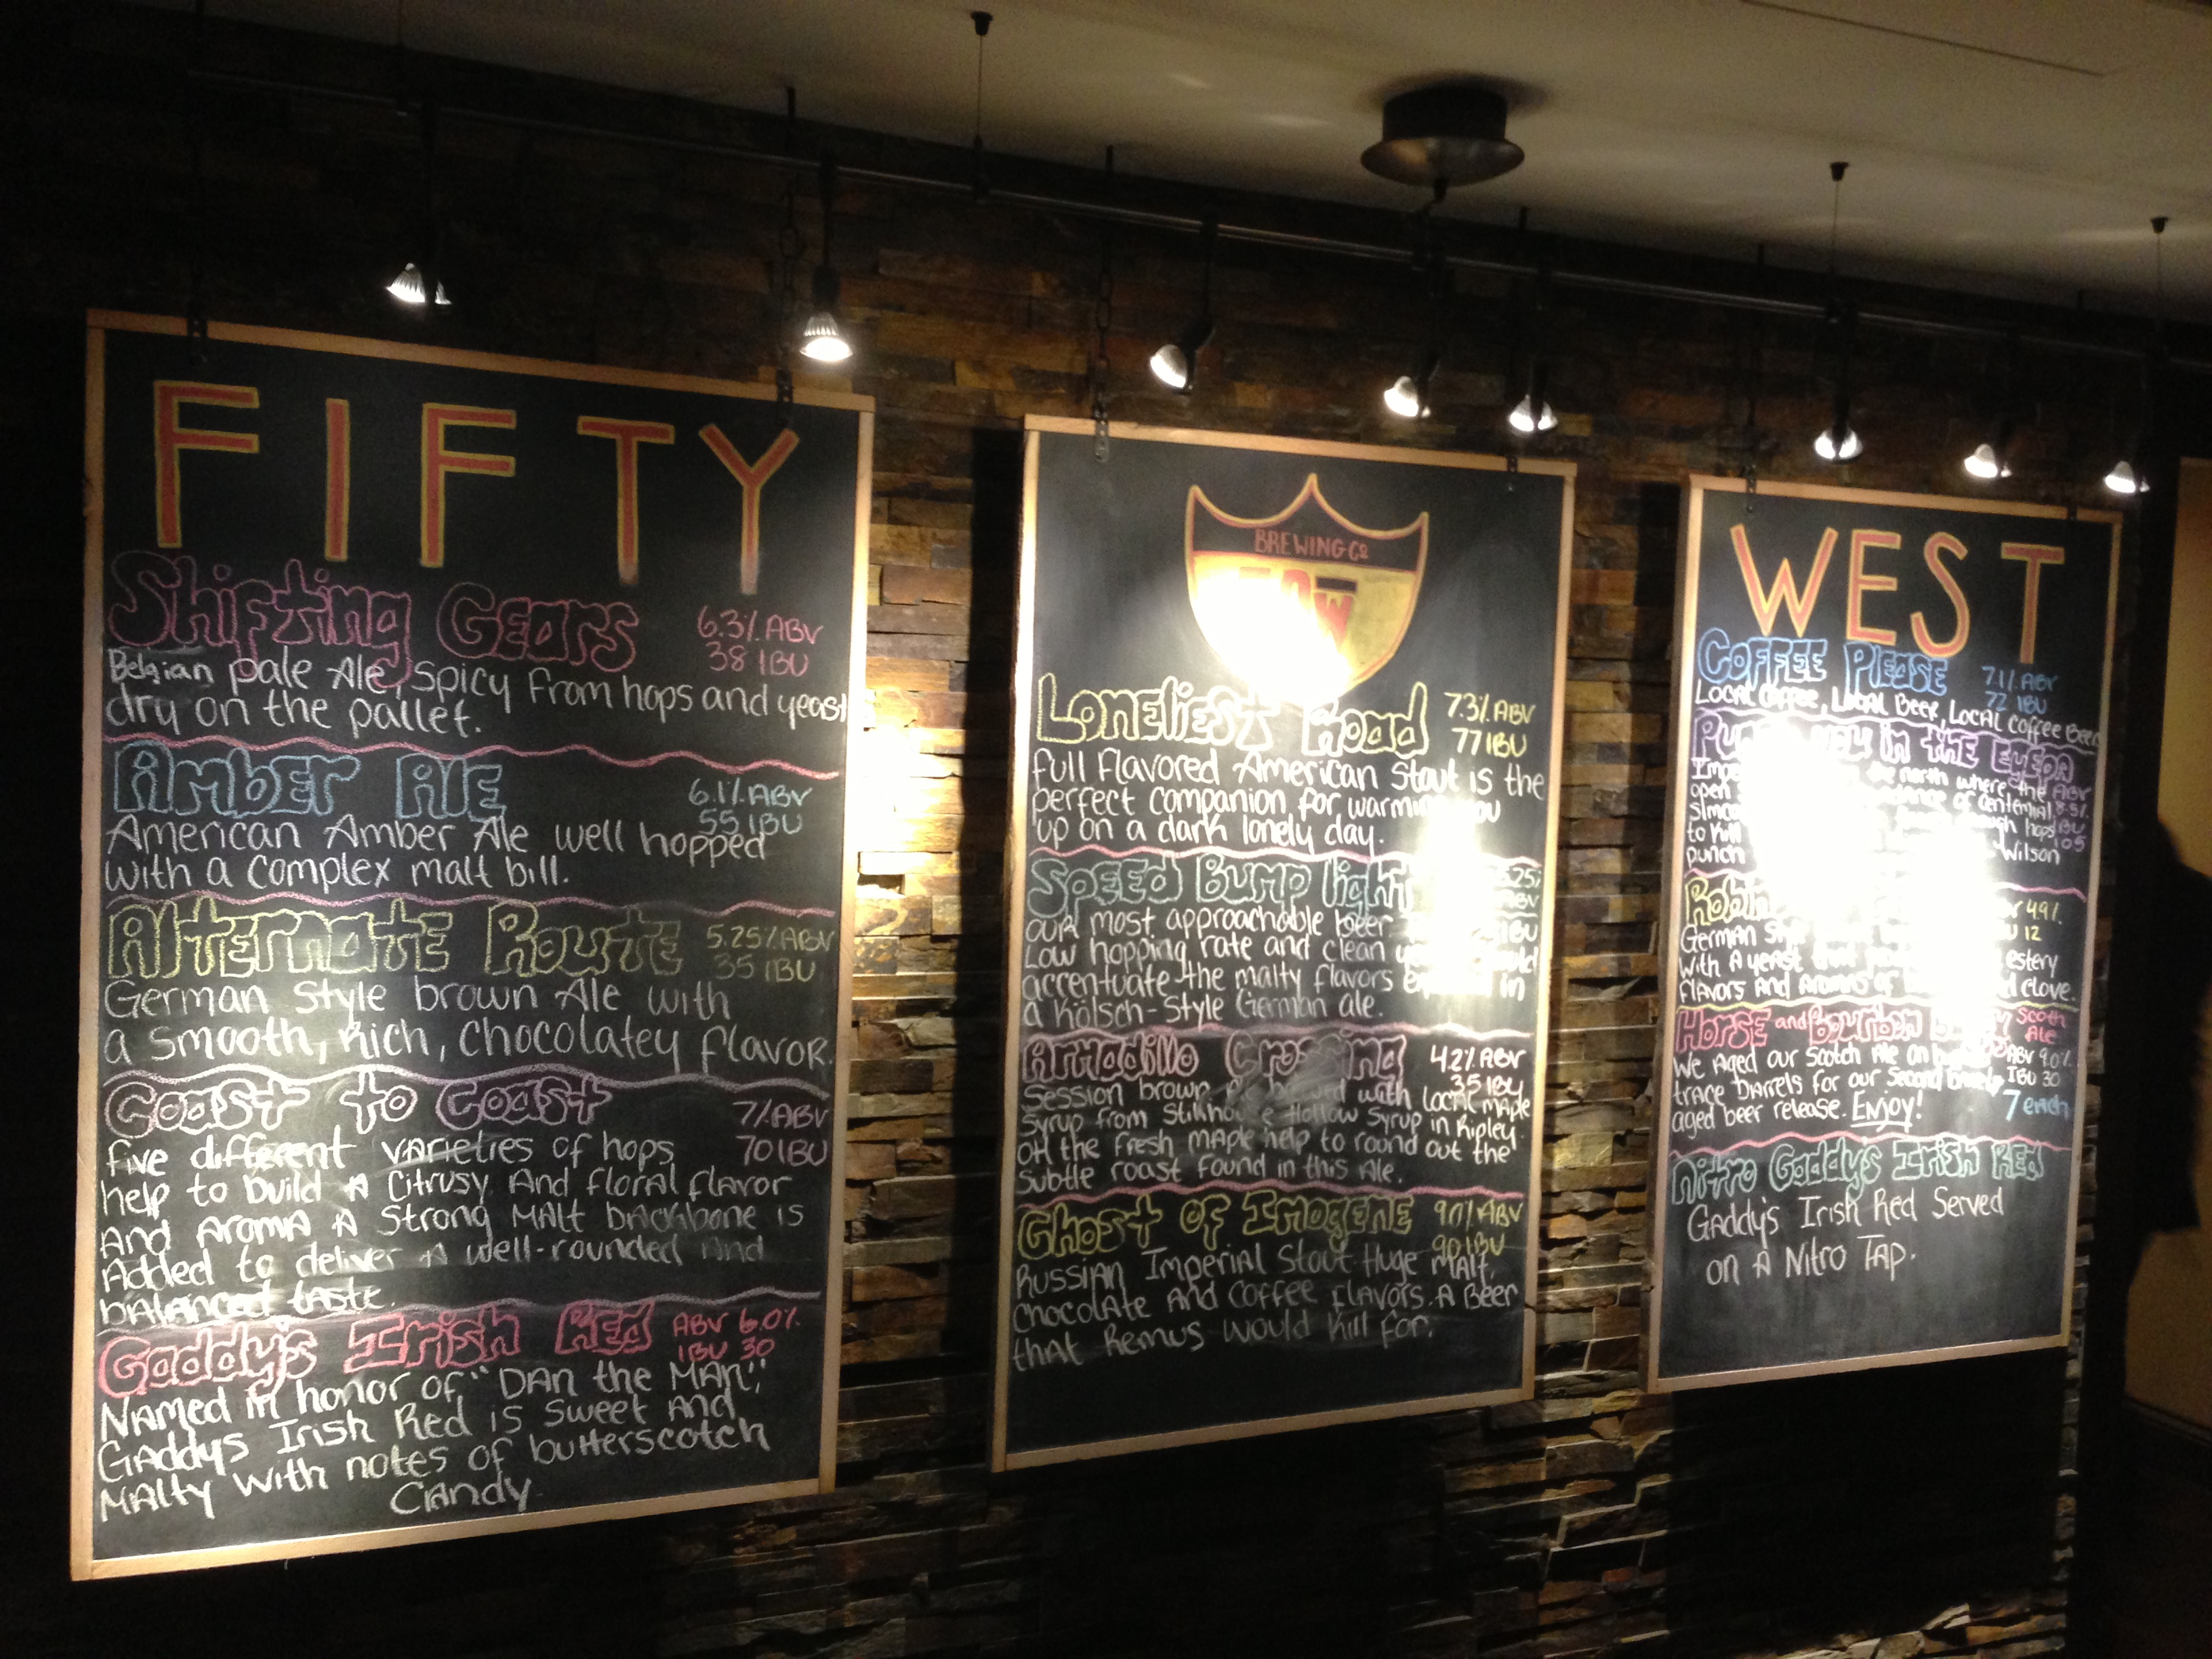 FIFTY
Shifting Gears 6.3% ABV
38 IBU
Belgian pale Ale, Spicy from hops and yeast
dry on the pallet.
Amber Ale 6.1% ABV
55 IBU
American Amber Ale well hopped
with a complex malt bill.
Alternate Route 5.25% ABV
35 IBU
German Style brown Ale with
a smooth, rich, chocolatey flavor.
Coast to Coast 7% ABV
70 IBU
five different varieties of hops
help to build A Citrusy And floral flavor
And Aroma A Strong Malt backbone is
Added to deliver A well-rounded And
balanced taste.
Gaddy's Irish Red ABV 6.0%
IBU 30
Named in honor of "DAn the MAn",
GAddys Irish Red is Sweet And
MAlty With notes of butterscotch
Candy
BREWING CO
Loneliest Road 7.3% ABV
77 IBU
full flavored American Stout is the
perfect companion for warming you
up on a dark lonely day.
Speed Bump light
our most approachable beer
Low hopping rate and clean
accentuate the malty flavors in
a Kölsch-Style German ale.
Armadillo Crossing 4.2% ABV
35 IBU
Session brown with Local maple
Syrup from Stillhouse Hollow Syrup in Ripley
OH the Fresh maple help to round out the
Subtle roast found in this Ale.
Ghost of Imogene 9.0% ABV
90 IBU
Russian Imperial Stout Huge Malt,
Chocolate And Coffee flavors. A Beer
that Remus would kill for.
WEST
Coffee Please 7.1% ABV
72 IBU
Local Coffee, Local Beer, Local Coffee Beer
in the EyePA
north where the ABV
open of Centennial 8.5%
hops IBU
to kill 105
punch Wilson
4.9%
German 12
with A yeast estery
flavors And Aromas of clove.
Horse and Bourbon Scoth
Ale
We Aged our Scotch Ale on ABV 9.0%
trace barrels for our Second IBU 30
aged beer release. Enjoy! 7 each
Nitro Gaddy's Irish Red
Gaddy's Irish Red Served
on A Nitro Tap.